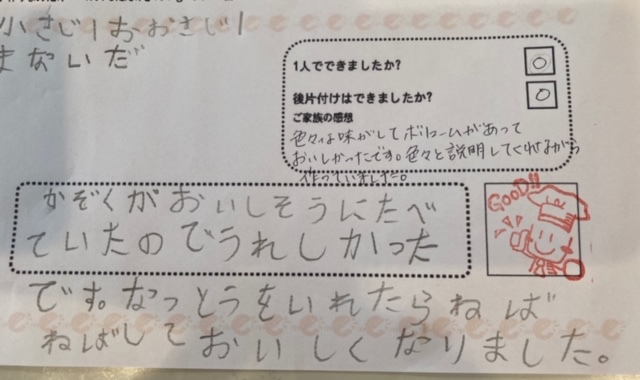 小さじ1おおさじ1
まないた
1人でできましたか? ○
後片付けはできましたか? ○
ご家族の感想
色々な味がしてボリュームがあって
おいしかったです。色々と説明してくれながら
作っていました。
かぞくがおいしそうにたべ
ていたのでうれしかった
です。なっとうをいれたらねば
ねばしておいしくなりました。
GOOD!!